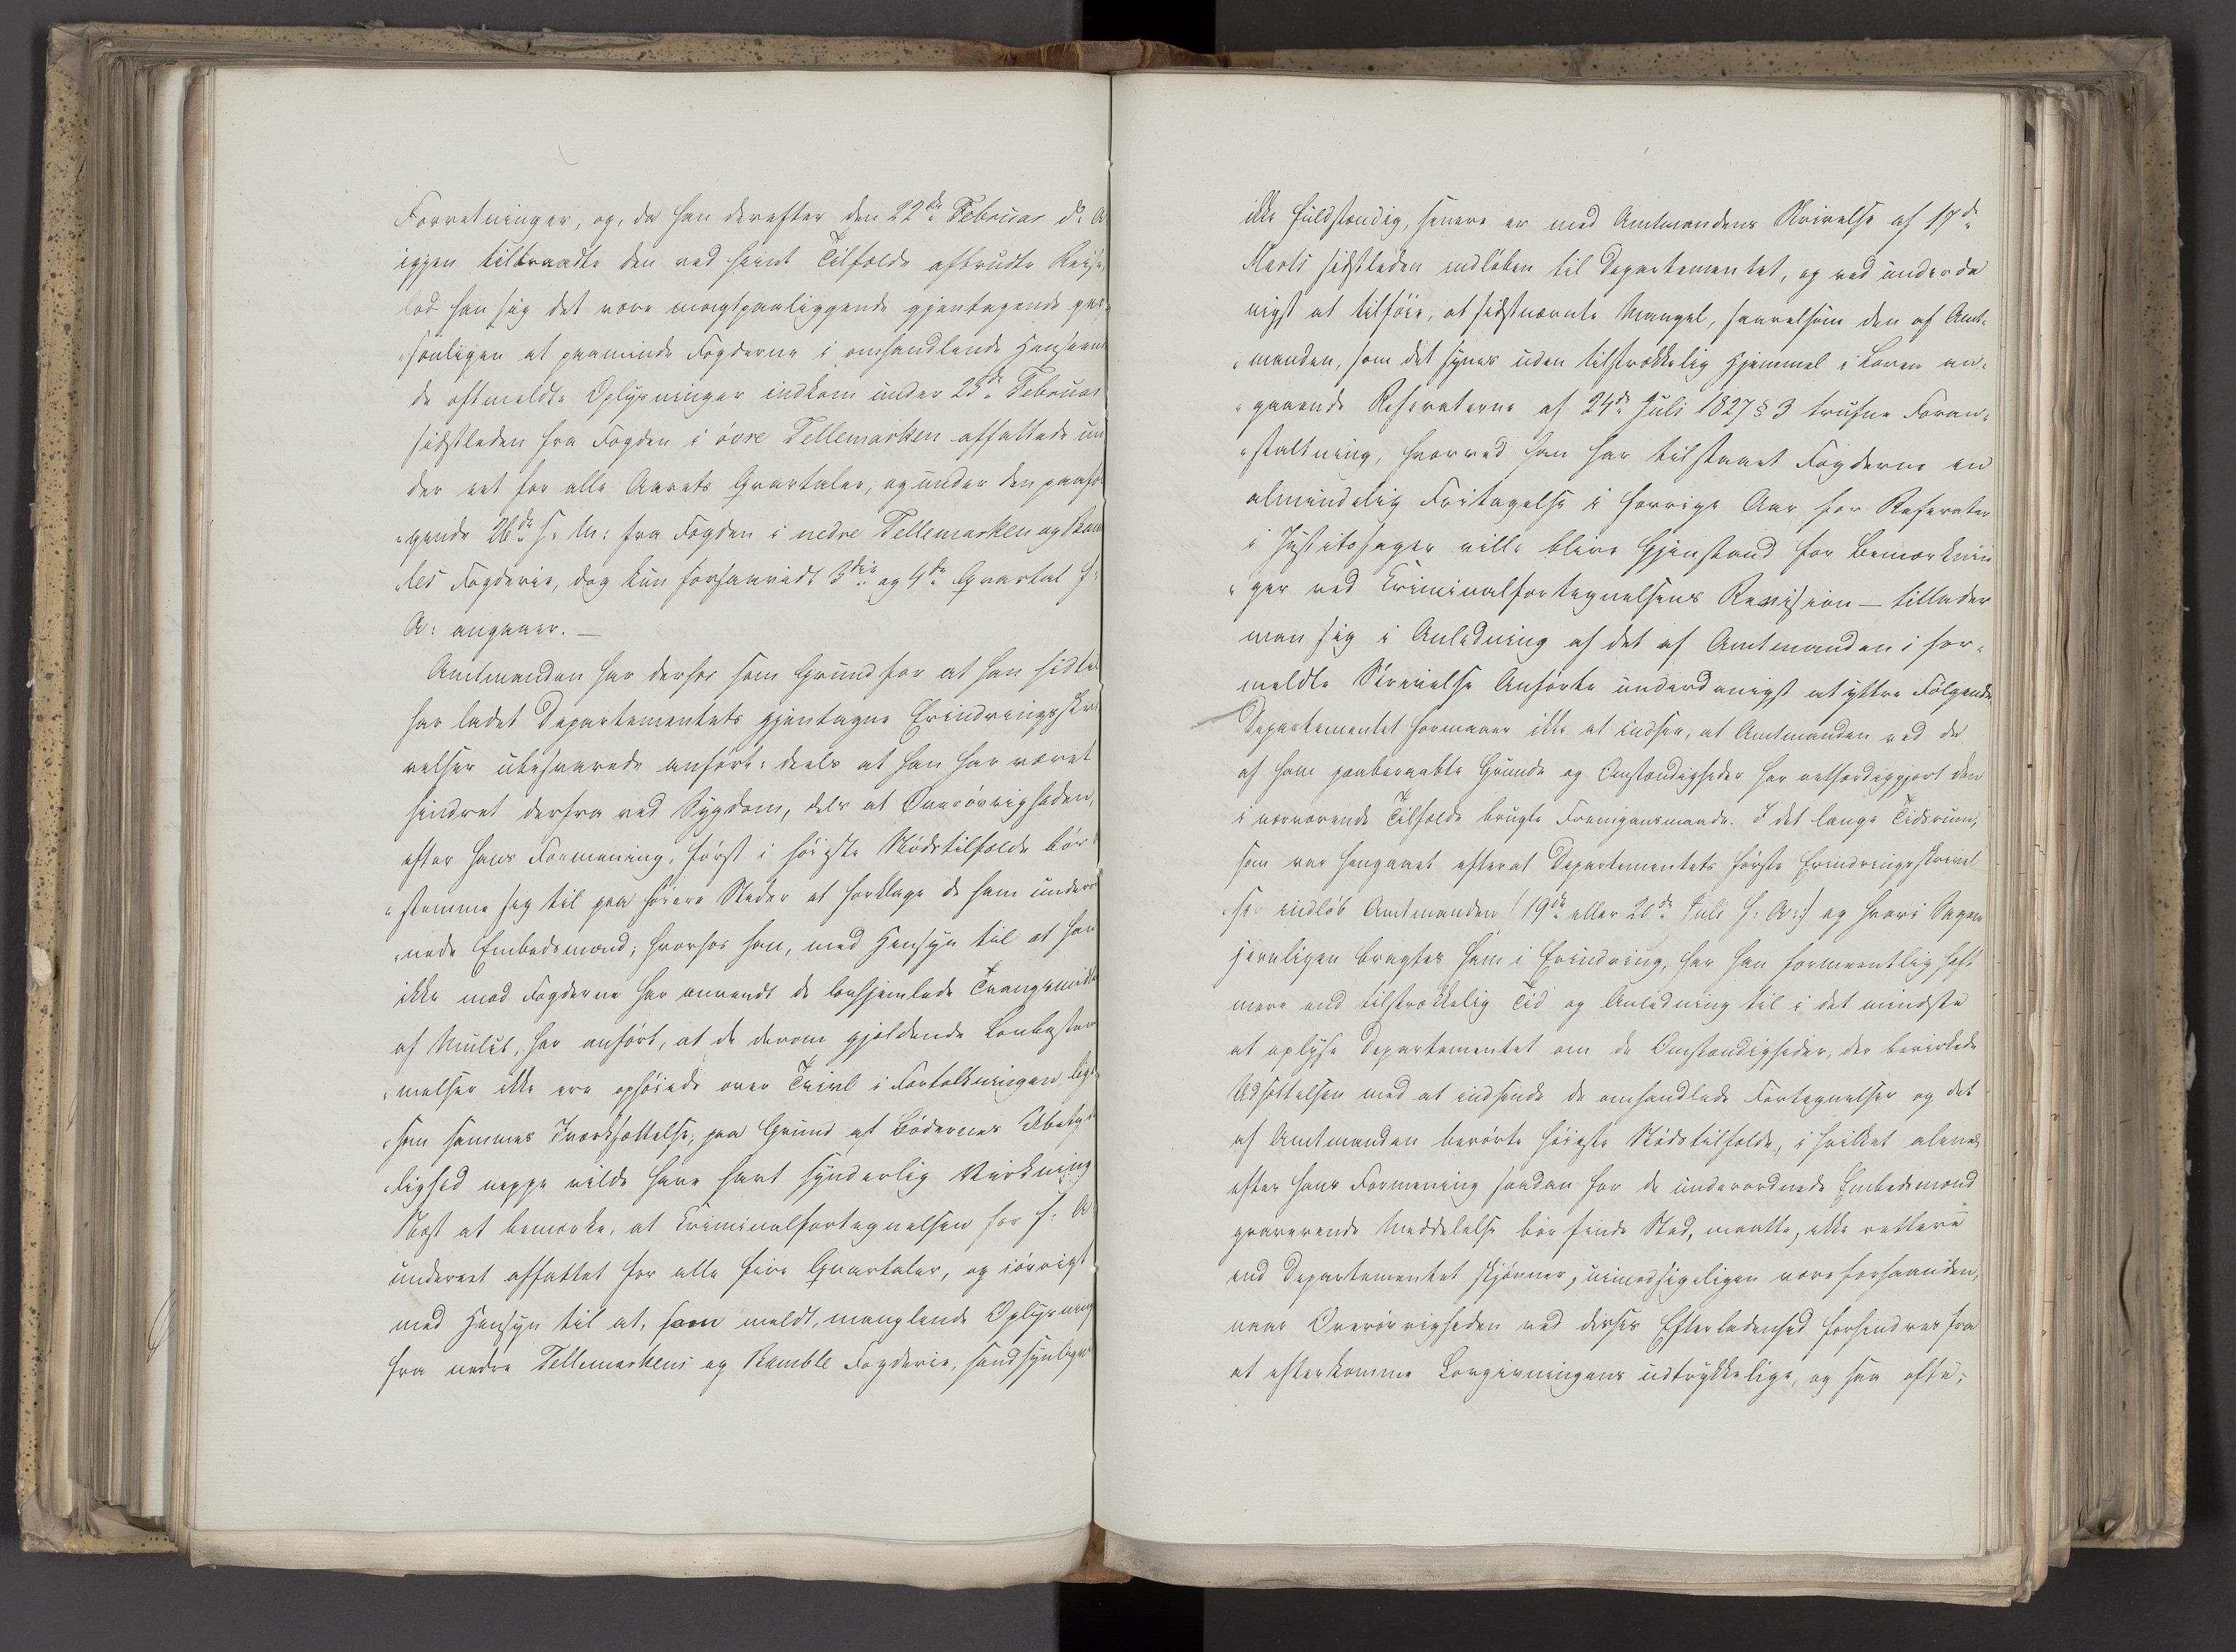 Forretninger, og, da han derefter den 22de Februar d. A
igjen tiltraadte den ved heint Tilfælde afbrudte Reise,
lod han sig det være magtpaaliggende gjentagende per-
"sonligen at paaminde Fogderne i omhandlende Henseende
de oftmeldte Oplysninger indkom under 25de Februar
sidstleden fra Fogden i övre Tellemarken affattede un
der eet for alle Aarets Qvartaler, og under den paaföl
"gende 26de s. M: fra Fogden i nedre Tellemarken og Bam
bles Fogderie, dog kun forsaavidt 3die og 4de Qvartal f:
A: angaaer. —
Amtmanden har derhos som Grund for at han hidtil
har ladet Departementets gjentagne Erindringsskri
velser ubesvarede anfört: deels at han har været
hindret derfra ved Sygdom, dels at Overövrigheden,
efter hans Formening, först i höieste Nödstilfælde bör
"stemme sig til paa höiere Steder at forklage de ham underord
"nede Embedsmænd; hvorhos han, med Hensyn til at han
ikke mod Fogderne har anvendt de lovhjemlede Tvangsmidler
af Mulct, har anfört, at de derom gjældende Lovbestem
"melser ikke ere ophöiede over Tvivl i Fortolkningen, lige
"som sammes Iværksættelse, paa Grund af Bödernes Ubetyde
"lighed neppe vilde have havt synderlig Virkning
Næst at bemærke, at Criminalfortegnelsen for f: A.
undereet affattet for alle fire Qvartaler, og iövrigt
med Hensyn til at, som meldt, manglende Oplysning
fra nedre Tellemarkens og Bamble Fogderie, sandsynligvis
ikke fuldstændig, senere er med Amtmandens Skrivelse af 17de
Marts sidstleden indlöben til Departementet, og ved underda
nigst at tilföie, at sidstnævnte Mangel, saavelsom den af Amt-
"manden, som det synes uden tilstrækkelig Hjemmel i Loven an-
"gaaende Referaterne af 24de Juli 1827 § 3 trufne Foran-
"staltning, hvorved han har tilstaaet Fogderne en
almindelig Fritagelse i forrige Aar for Referater
i Justitssager ville blive Gjenstand for Bemærknin
"ger ved Criminalfortegnelsens Revision — tillader
man sig i Anledning af det af Amtmanden i for-
meldte Skrivelse Anförte underdanigst at yttre Fölgende.
Departementet formaaer ikke at indsee, at Amtmanden ved de
af ham paaberaabte Grunde og Omstændigheder har retfærdiggjort den
i nærværende Tilfælde brugte Fremgangsmaade. I det lange Tidsrum,
som var hengaaet efterat Departementets förste Erindringsskrivel
"se indlöb Amtmanden (19de eller 20de Juli f: A:) og hvori Sagen
jevnligen bragtes ham i Erindring, har han formeentlig havt
mere end tilstrækkelig Tid og Anledning til i det mindste
at oplyse Departementet om de Omstændigheder, der bevirkede
Udsættelsen med at indsende de omhandlede Fortegnelser og det
af Amtmanden berörte höieste Nödstilfælde, i hvilket alene
efter hans Formening saadan for de underordnede Embedsmænd
graverende Meddelelse bör finde Sted, maatte, ikke rettere
end Departementet skjönner, uimodsigeligen være forhaanden,
naar Overövrigheden ved disses Efterladenhed forhindres fra
at efterkomme Lovgivningens udtrykkelige, og saa ofte-